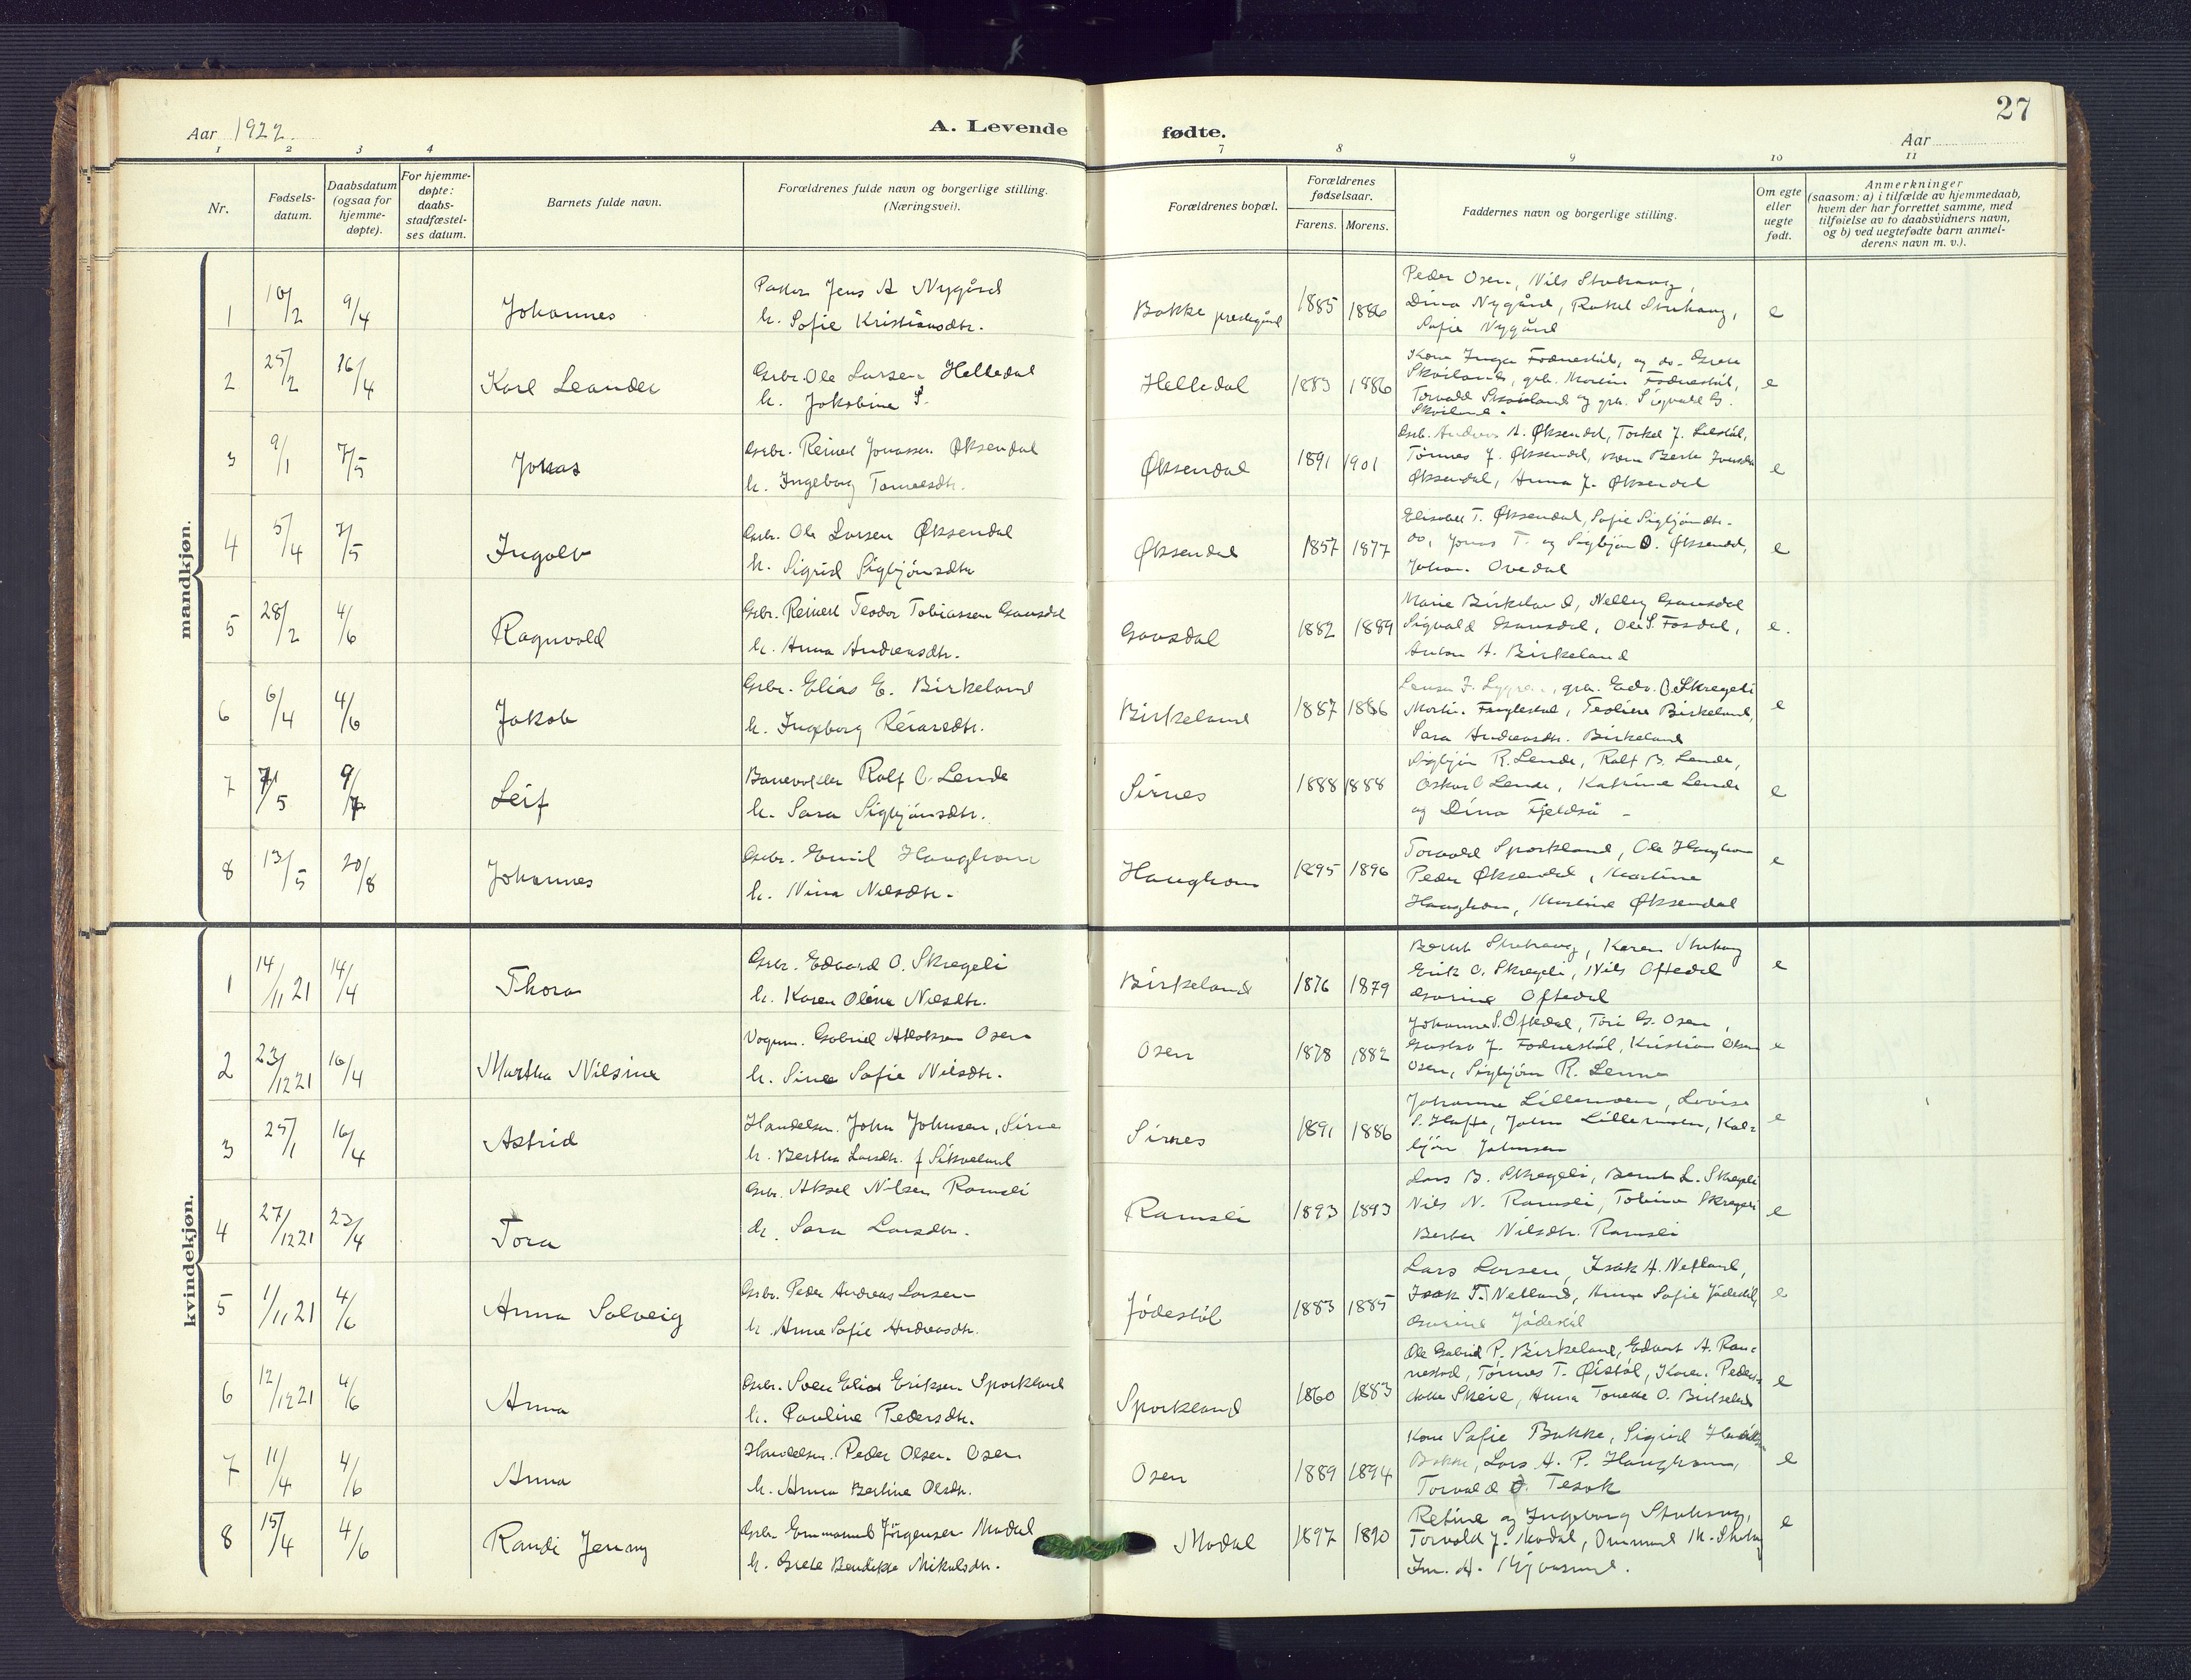 27
Aar 1922.
A. Levende fødte.
Aar
1 2 3 4 7 8 9 10 11
Nr.
Fødsels-
datum.
Daabsdatum
(ogsaa for
hjemme-
døpte).
For hjemme-
døpte:
daabs-
stadfæstel-
ses datum.
Barnets fulde navn.
Forældrenes fulde navn og borgerlige stilling.
(Næringsvei).
Forældrenes bopæl.
Forældrenes
fødselsaar.
Farens. Morens.
Faddernes navn og borgerlige stilling.
Om egte
eller
uegte
født.
Anmerkninger
(saasom: a) i tilfælde av hjemmedaab,
hvem der har forrettet samme, med
tilføielse av to daabsvidners navn,
og b) ved uegtefødte barn anmel-
derens navn m. v.).
mandkjøn.
1 10/2 9/4 Johannes
Jens A Nygård
h. Sofie Kristiansdtr.
Bakke prestegård 1885 1886
Peder Osen, Nils Stuhaug,
Dina Nygård, Rakel Stuhaug,
Sofie Nygård
e
2 25/2 16/4 Karl Leander
Grbr. Ole Larsen Helledal
h. Jakobine S.
Helledal 1883 1886
Kona Inga Fodnestøl, og do. Grete
Skåiland, grb. Martin Fodnestøl,
Torvald Skåiland og grb. Sigvald G.
Skåiland.
e
3 9/1 7/5 Jonas
Grbr. Reinert Jonassen Øksendal
h. Ingeborg Tønnesdtr.
Øksendal 1891 1901
Grb. Andreas A. Øksendal, Torkel J. Lilstøl,
Tønnes J. Øksendal, kona Berte
Øksendal, Anna J. Øksendal
e
4 5/4 7/5 Ingolv
Grbr. Ole Larsen Øksendal
h. Sigrid Sigbjørnsdtr
Øksendal 1857 1877
Elisabet T. Øksendal, Sofie Sigbjørnsdtr.
do, Jonas T. og Sigbjørn O. Øksendal,
Johan. Ovedal
e
5 28/2 4/6 Ragnvald
Grbr. Reinert Teodor Tobiassen Gausdal
h. Anna Andreasdtr.
Gausdal 1882 1889
Marie Birkeland, Nelly Gausdal
Sigvald Gausdal, Ole S. Fosdal,
Anton A. Birkeland
e.
6 6/4 4/6 Jakob
Grbr. Elias E. Birkeland
h. Ingeborg Reiarsdtr.
Birkeland 1887 1886
grb. Edv. O. Skregeli
Martin Fuglestøl, Teoline Birkeland,
Sara Andreasdtr. Birkeland
e
7 /5 9/7 Leif
Banevokter Ralf O. Lende
h. Sara Sigbjørnsdtr.
Sirnes 1888 1888
Sigbjørn R. Lende, Ralf B. Lende,
Oskar O Lende, Katrine Lende
og Dina Fjeldså
e
8 13/5 20/8 Johannes
Grbr. Emil Haughom
h. Nina Nilsdtr.
Haughom 1895 1896
Torvald Sporkland, Ole Haughom
Peder Øksendal, Martine
Haughom, Martine Øksendal
e
kvindekjøn.
1 14/11 21 14/4 Thora
Grbr. Edvard O. Skregeli
h. Karen Oléna Nilsdtr.
Birkeland 1876 1879
Bernt Stuhaug, Karen Stuhaug
Erik O. Skregeli, Nils Oftedal
Gurine Oftedal
e
2 23/12 21 16/4 Martha Nilsine
Vognm. Gabriel Osen
h. Sine Sofie Nilsdtr.
Osen 1878 1882
Johanne S. Oftedal, Tori G. Osen,
Gustav J. Fodnestøl, Kristian Olsen
Osen, Sigbjørn R. Lende
e
3 25/1 16/4 Astrid
Handelsm. John Johnsen, Sirnes
h. Bertha Larsdtr. f Sikveland
Sirnes 1891 1886
Johanne Lillemoen, Lovise
S. Hafte, John Lillemoen, Kol-
bjørn Johnsen
e
4 27/12 21 23/4 Tora
Grbr. Aksel Nilsen Ramsli
h. Sara Larsdtr.
Ramsli 1893 1893
Lars B. Skregeli, Bernt L. Skregeli
Nils N. Ramsli, Tobine Skregeli
Berta Nilsdtr. Ramsli
e
5 1/11 21 4/6 Anna Solveig
Grbr. Peder Andreas Larsen
h. Anne Sofie Andreasdtr.
Jødestøl 1883 1885
Lars Larsen, Isak A. Netland,
Isak T. Netland, Anna Sofie Jødestøl,
Gurine Jødestøl
e
6 12/12 21 4/6 Anna
Grbr. Sven Elias Eriksen Sporkland
h. Pauline Pedersdtr.
Sporkland 1860 1883
Ole Gabriel P. Birkeland, Edvart A. Ran-
nestad, Tønnes T. Øistøl, Karen Peders-
datter Skeie, Anna Tonette O. Birkeland
e
7 11/4 4/6 Anna
Handelsm. Peder Olsen Osen
h. Anna Bertine Olsdtr.
Osen 1889 1894
Kona Sofie Bakke, Sigrid
Bakke, Lars A. P. Haughom,
Torvald O. Tesok
e
8 15/4 4/6 Randi Jenny
Grbr. Emmanuel Jørgensen Modal
h. Grete Bendikte Mikalsdtr.
Modal 1897 1890
Retine og Ingeborg Stuhaug,
Torvald J. Modal, Ommund M. Stuhaug
e